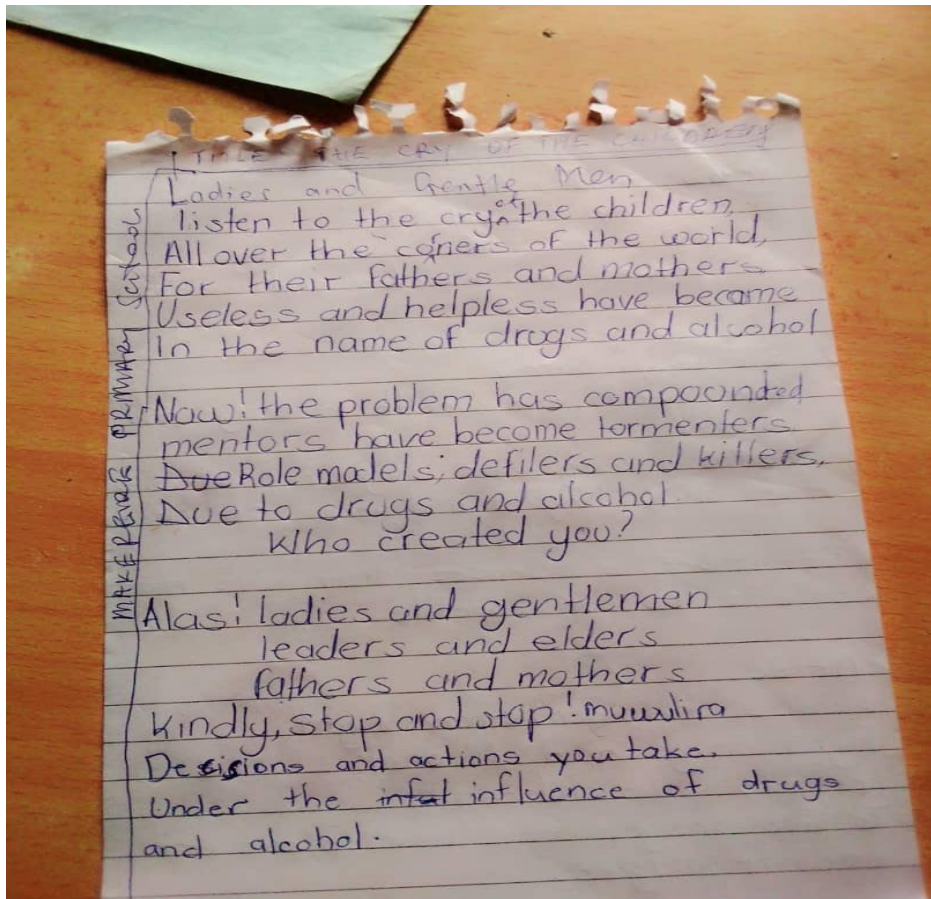 TITLE THE CRY OF THE CHILDREN
Ladies and Gentle Men
listen to the cry of the children,
All over the corners of the world,
For their fathers and mothers
Useless and helpless have become
In the name of drugs and alcohol
Now! the problem has compounded
mentors have become tormenters
Due Role models; defilers and killers,
Due to drugs and alcohol
Who created you?
Alas! ladies and gentlemen
leaders and elders
fathers and mothers
Kindly, stop and stop! muwulira
Decisions and actions you take.
Under the influence of drugs
and alcohol.
PRIMARY SCHOOL